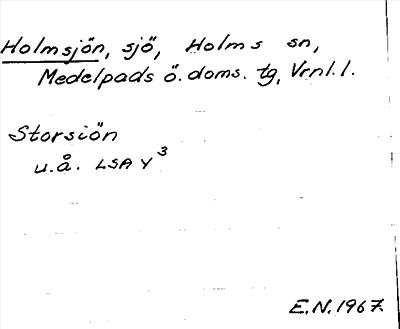 Holmsjön, sjö, Holms sn,
Medelpads ö. doms. tg, Vrnl. l.
Storsiön
u.å. LSA Y³
E.N. 1967.